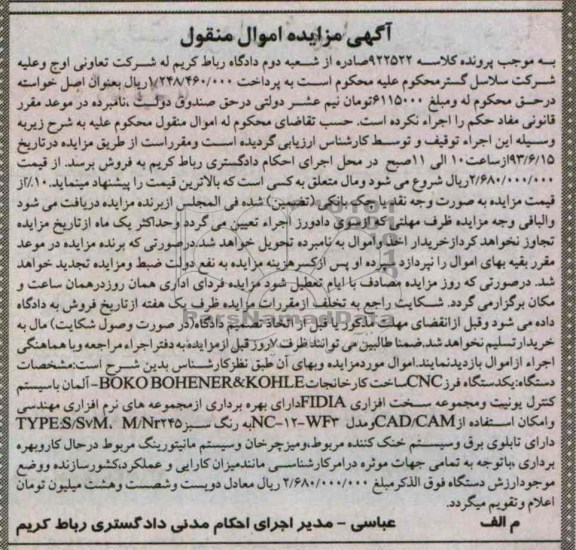 آگهی مزایده اموال منقول
به موجب پرونده کلاسه ۹۲۲۵۲۲صادره از شعبه دوم دادگاه رباط کریم له شرکت تعاونی اوج وعلیه
شرکت سلاسل گسترمحکوم علیه محکوم است به پرداخت ۱/۲۴۸/۴۶۰/۰۰۰ریال بعنوان اصل خواسته
درحق محکوم له ومبلغ ۶۱۱۵۰۰۰تومان نیم عشر دولتی درحق صندوق دولت ،نامبرده در موعد مقرر
قانونی مفاد حکم را اجراء نکرده است. حسب تقاضای محکوم له اموال منقول محکوم علیه به شرح زیربه
وسیله این اجراء توقیف و توسط کارشناس ارزیابی گردیده است ومقرراست از طریق مزایده درتاریخ
۹۳/۶/۱۵ازساعت۱۰ الی ۱۱صبح در محل اجرای احکام دادگستری رباط کریم به فروش برسد. از قیمت
۲/۶۸۰/۰۰۰/۰۰۰ریال شروع می شود ومال متعلق به کسی است که بالاترین قیمت را پیشنهاد مینماید.۱۰٪از
قیمت مزایده به صورت وجه نقد یا چک بانکی (تضمین) شده فی المجلس ازبرنده مزایده دریافت می شود
والباقی وجه مزایده ظرف مهلتی که ازسوی دادورز اجراء تعیین می گردد وحداکثر یک ماه ازتاریخ مزایده
تجاوز نخواهد کردازخریدار اخذواموال به نامبرده تحویل خواهد شد.درصورتی که برنده مزایده در موعد
مقرر بقیه بهای اموال را نپردازد سپرده او پس ازکسرهزینه مزایده به نفع دولت ضبط ومزایده تجدید خواهد
شد. درصورتی که روز مزایده مصادف با ایام تعطیل شود مزایده فردای اداری همان روزدرهمان ساعت و
مکان برگزارمی گردد. شکایت راجع به تخلف ازمقررات مزایده ظرف یک هفته ازتاریخ فروش به دادگاه
داده می شود وقبل ازانقضای مهلت مذکور یا قبل از اتخاذ تصمیم دادگاه(در صورت وصول شکایت) مال به
خریدارتسلیم نخواهدشد.ضمنا طالبین می توانند ظرف ۷روز قبل ازمزایده به دفتراجراء مراجعه وبا هماهنگی
اجراء ازاموال بازدیدنمایند.اموال موردمزایده وبهای آن طبق نظرکارشناس بدین شرح است:مشخصات
دستگاه:یکدستگاه فرزCNCساخت کارخانجاتBOKO BOHENER&KOHLE- آلمان باسیستم
کنترل یونیت ومجموعه سخت افزاری FIDIAدارای بهره برداری ازمجموعه های نرم افزاری مهندسی
وامکان استفاده ازCAD/CAMومدل NC-۱۲-WF۳به رنگ سبزTYPE:S/SvM, M/Nr۲۴۵
دارای تابلوی برق وسیستم خنک کننده مربوط،ومیزچرخان وسیستم مانیتورینگ مربوط درحال کاروبهره
برداری ،باتوجه به تمامی جهات موثره درامرکارشناسی مانندمیزان کارایی و عملکرد،کشورسازنده ووضع
موجودارزش دستگاه فوق الذکرمبلغ ۲/۶۸۰/۰۰۰/۰۰۰ ریال معادل دویست وشصت وهشت میلیون تومان
اعلام وتقویم میگردد.
م الف عباسی - مدیر اجرای احکام مدنی دادگستری رباط کریم
ParsNamadData